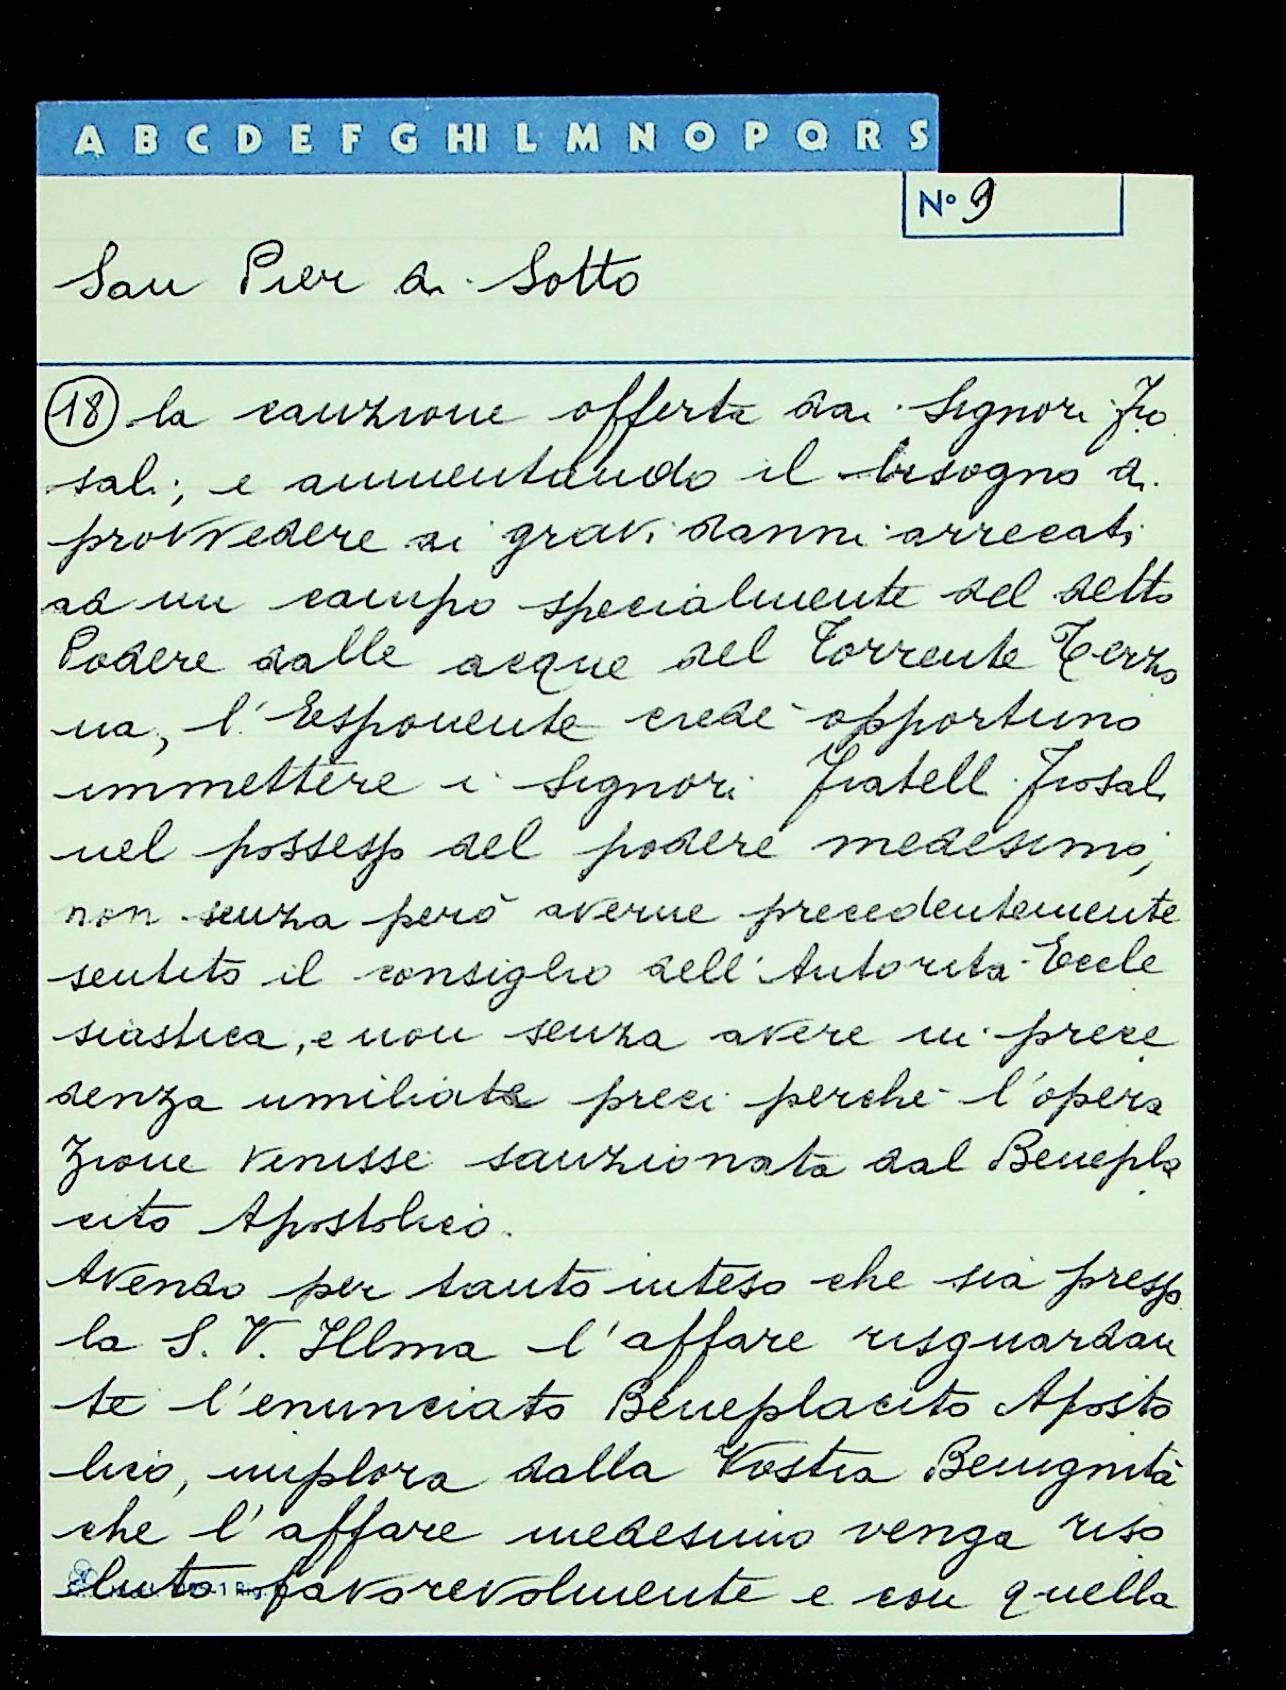 A B C D E F G HI L M N O P Q R S
N° 9
San Pier di Sotto
(18) la cauzione offerta dai Signori Fro
sali; e aumentando il bisogno di
provvedere ai gravi danni arrecati
ad un campo specialmente del detto
Podere dalle acque del Torrente Terzo
na, l'Esponente crede opportuno
immettere i Signori Fratelli Frosali
nel possesso del podere medesimo,
non senza però averne precedentemente
sentito il consiglio dell'Autorità Eccle
siastica, e non senza avere in prece
denza umiliate preci perché l'opera
zione venisse sanzionata dal Benepla
cito Apostolico.
Avendo per tanto inteso che sia presso
la S. V. Illma l'affare risguardan
te l'enunciato Beneplacito Aposto
lico, implora dalla Vostra Benignità
che l'affare medesimo venga riso
luto favorevolmente e con quella